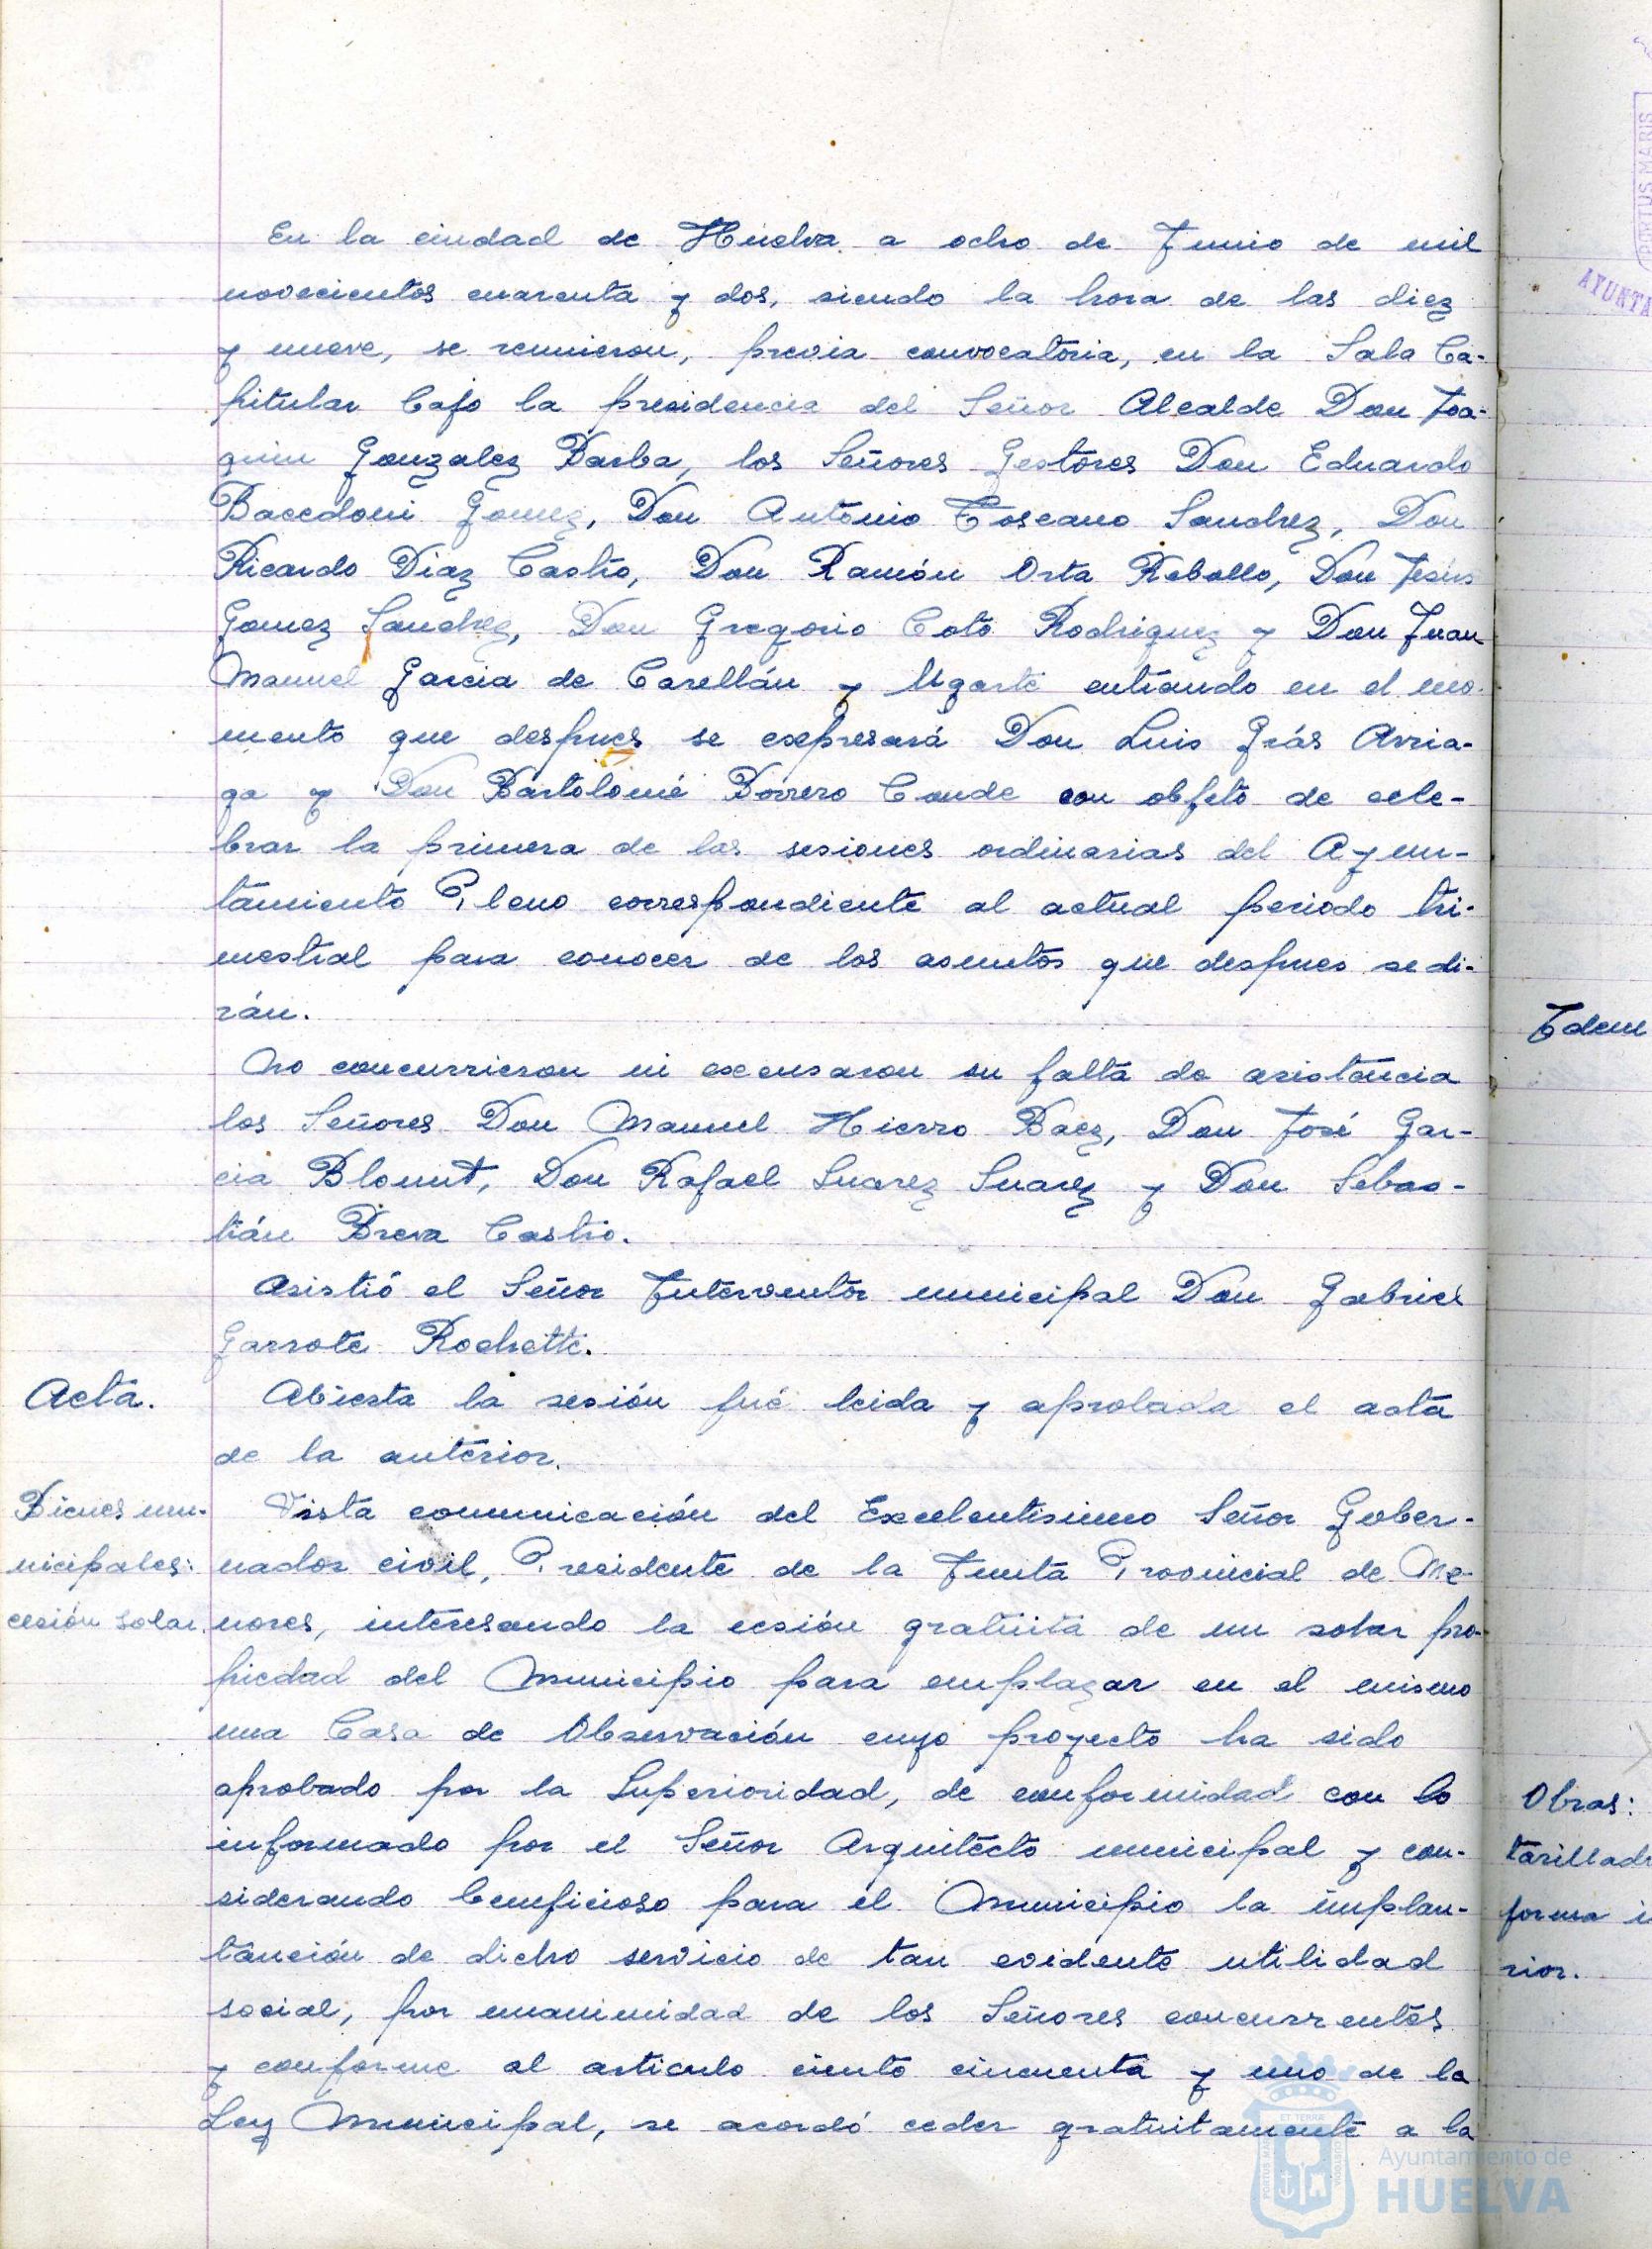 En la ciudad de Huelva a ocho de Junio de mil
novecientos cuarenta y dos, siendo la hora de las diez
y nueve, se reunieron, previa convocatoria, en la Sala Ca-
pitular bajo la presidencia del Señor Alcalde Don Joa-
quin Gonzalez Barba, los Señores Gestores Don Eduardo
Bacedoni Gomez, Don Antonio Toscano Sanchez, Don
Ricardo Diaz Castro, Don Ramón Orta Rebollo, Don Jesús
Gomez Sanchez, Don Gregorio Coto Rodriguez y Don Juan
Manuel Garcia de Carellán y Ugarte entrando en el mo-
mento que despues se expresará Don Luis Grás Arria-
ga y Don Bartolomé Borrero Conde con objeto de cele-
brar la primera de las sesiones ordinarias del Ayun-
tamiento Pleno correspondiente al actual periodo tri-
mestral para conocer de los asuntos que despues se di-
rán.
No concurrieron ni excusaron su falta de asistencia
los Señores Don Manuel Hierro Baez, Don José Gar-
cia Blount, Don Rafael Suarez Suarez y Don Sebas-
tián Breva Castro.
Asistió el Señor Interventor municipal Don Gabriel
Garrote Rochette.
Acta.
Abierta la sesión fué leida y aprobada el acta
de la anterior.
Bienes mu-
nicipales:
cesión solar.
Vista comunicación del Excelentisimo Señor Gober-
nador civil, Presidente de la Junta Provincial de Me-
nores, interesando la cesión gratuita de un solar pro-
piedad del Municipio para emplazar en el mismo
una Casa de Observación cuyo proyecto ha sido
aprobado por la Superioridad, de conformidad con lo
informado por el Señor Arquitecto municipal y con-
siderando beneficioso para el Municipio la implan-
tanción de dicho servicio de tan evidente utilidad
social, por unanimidad de los Señores concurrentes
y conforme al articulo ciento cincuenta y uno de la
Ley Municipal, se acordó ceder gratuitamente a la
Idem
Obras:
forma i
rior.
PORTUS MARIS
AYUNTA
Ayuntamiento de
HUELVA